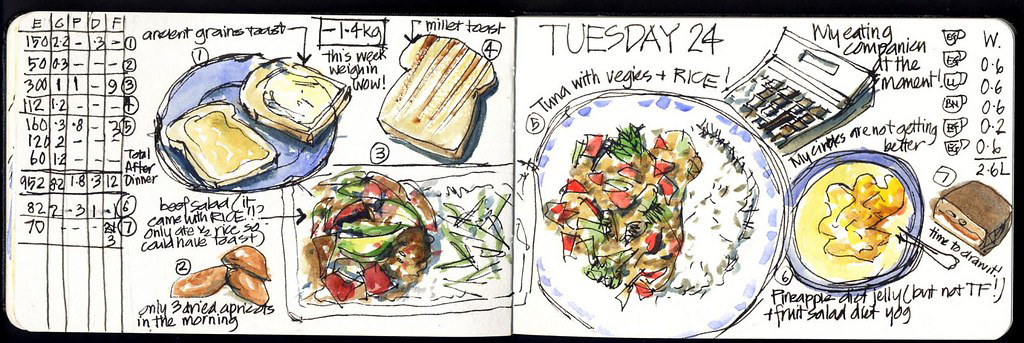 E C P D F
150 2.2 - .3 - ①
50 0.3 - - - ②
300 1 1 - 9 ③
112 1.2 - - - ④
160 .3 .8 - 2 ⑤
120 2 - - 3
60 1.2 - - -
Total
After
Dinner
952 82 1.8 .3 12
82 2 .3 1 1 ⑥
70 - - - ⑦
3
ancient grains toast
①
-1.4kg
this week
weigh in
wow!
millet toast
④
③
beef salad (it
came with RICE!!
only ate ½ rice so
could have toast)
②
only 3 dried apricots
in the morning
TUESDAY 24
Tuna with vegies + RICE!
⑤
My eating
companion
at the
moment!
My circles are not getting
better
W.
0.6
0.6
LL 0.6
BN 0.2
0.6
2.6L
⑦
time to draw it!
⑥
Pineapple diet jelly (but not TF!)
+ fruit salad diet yog